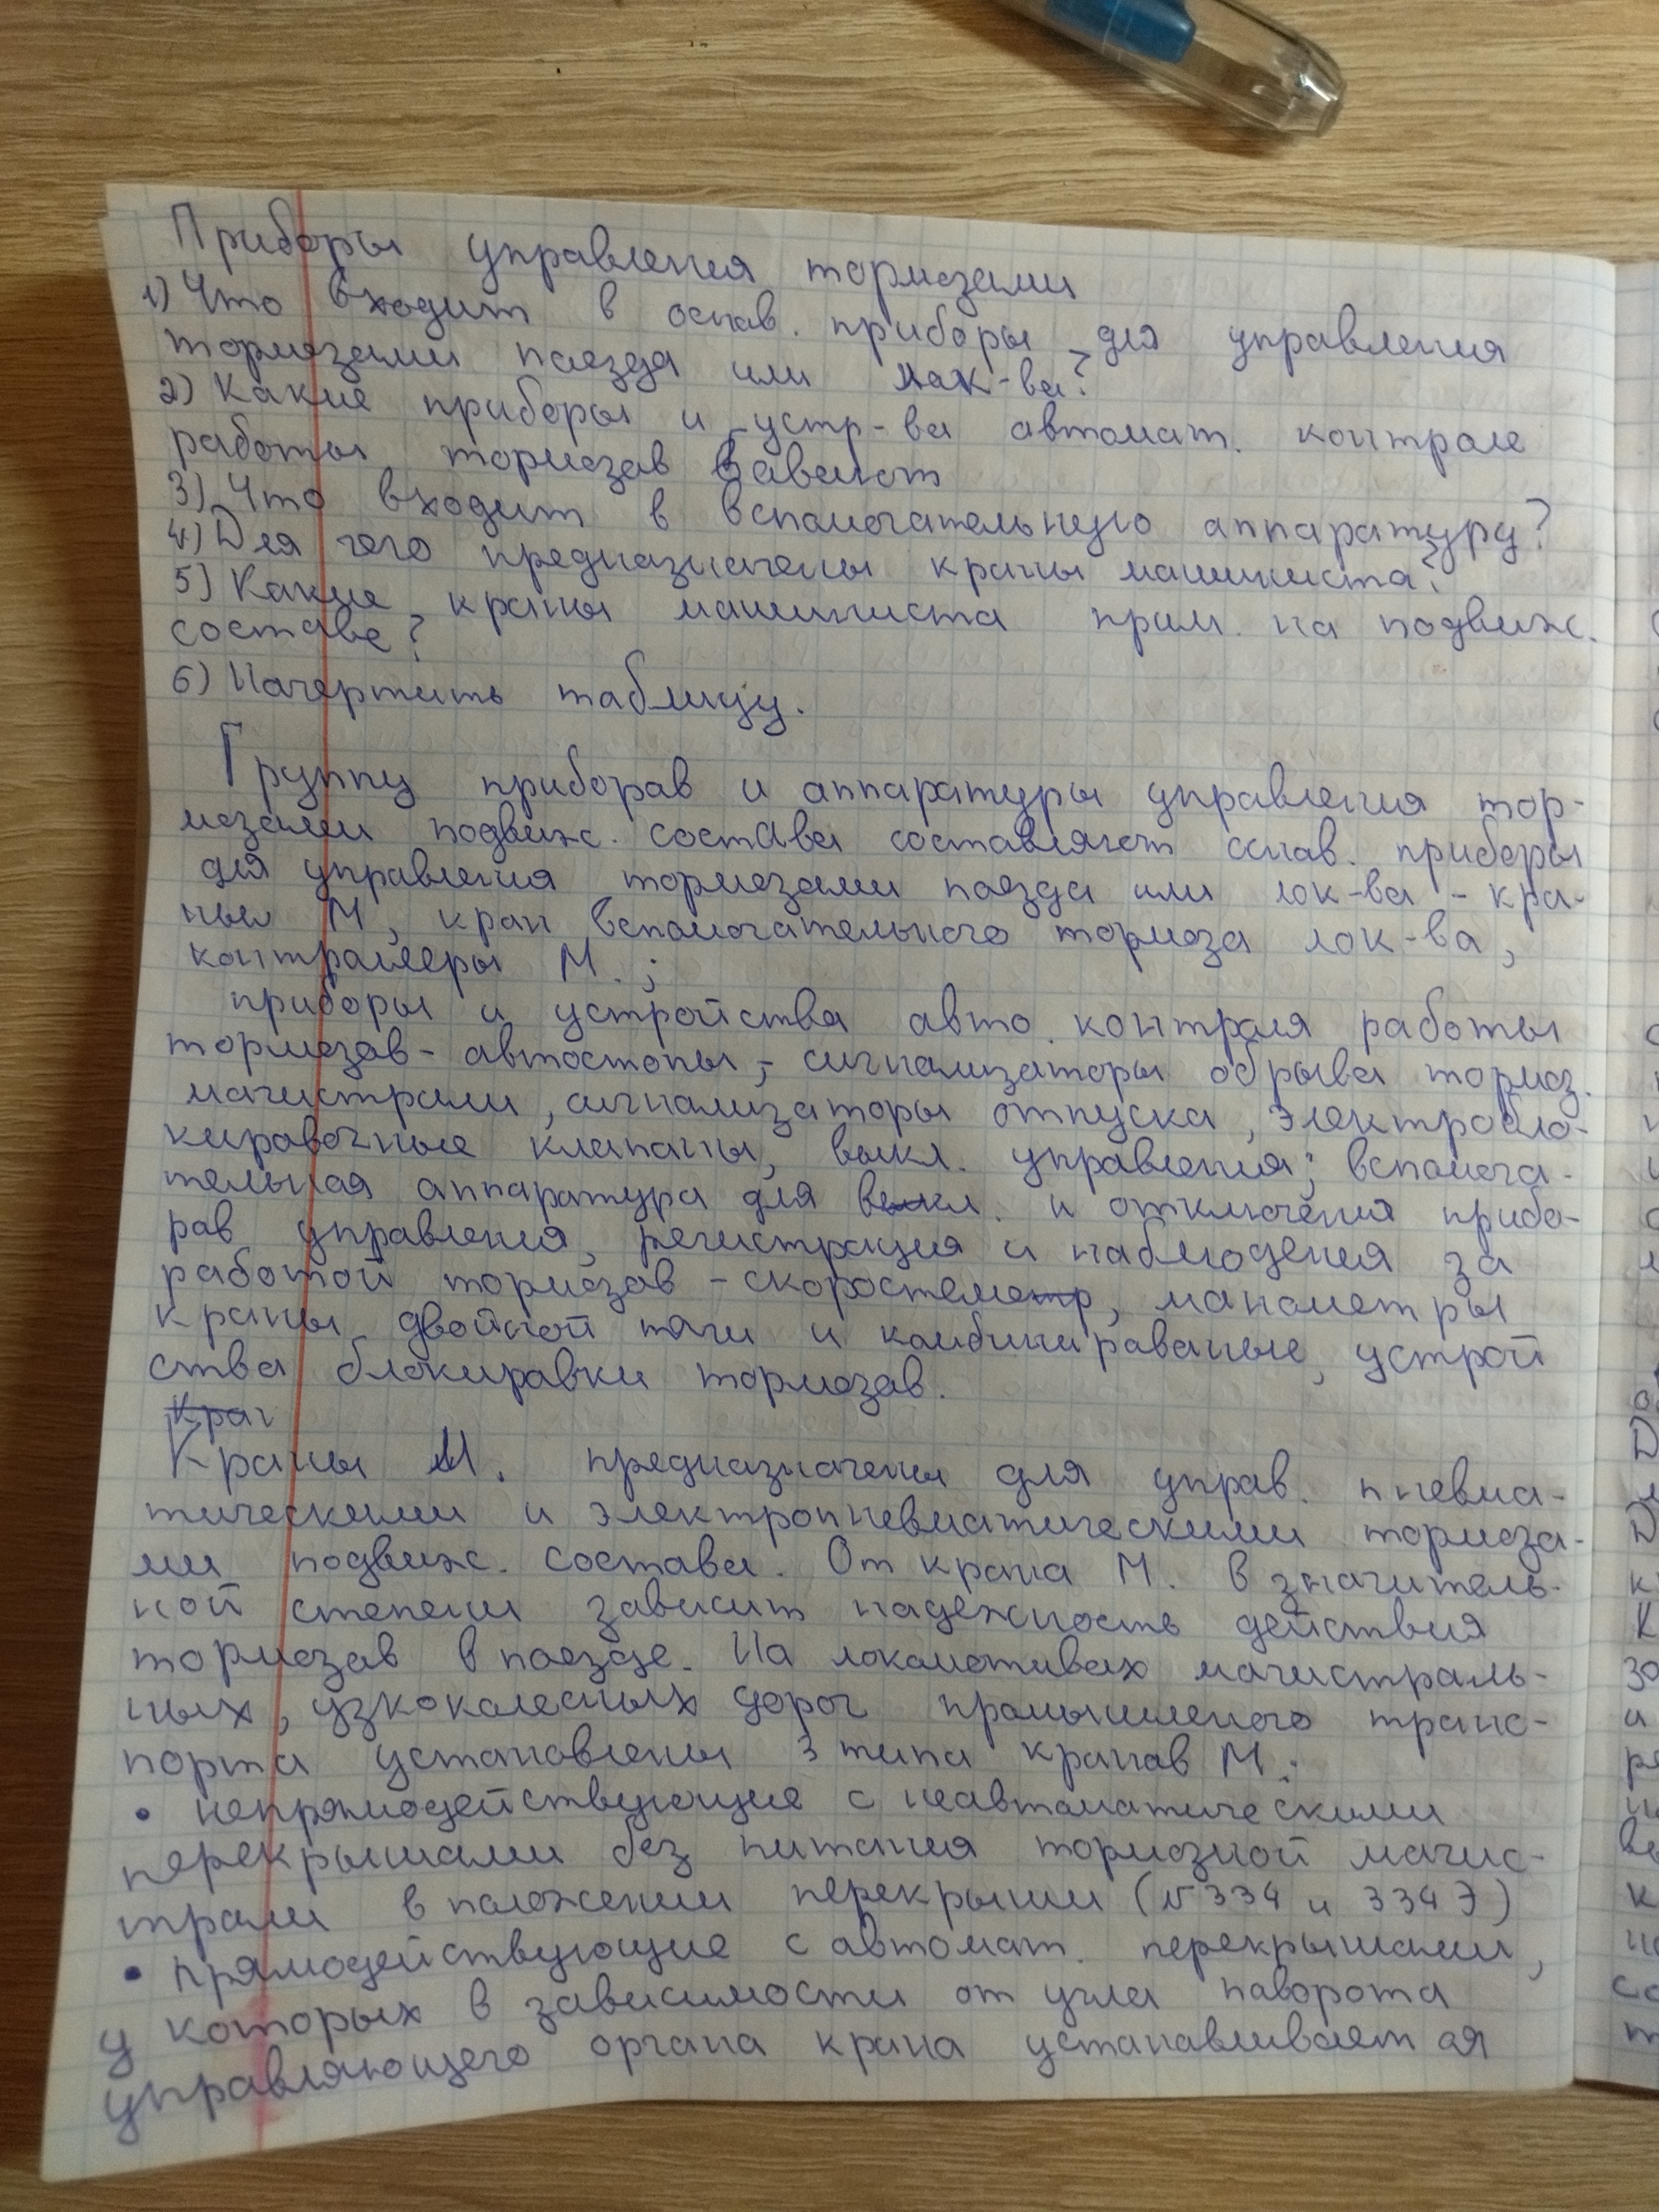 Приборы управления тормозами
1) Что входит в оснав. приборы для управления
тормозами поезда или лок-ва?
2) Какие приборы и устр-ва автомат. контроле
работы тормозав бавают
3) Что входит в вспомогательную аппаратуру?
4) Для чего предназначены краны машиниста?
5) Какие краны машиниста прим. на подвиж.
составе?
6) Начертить таблицу.
Группу приборав и аппаратуры управления тор-
мозами подвиж. состава составляют оснав. приборы
для управления тормозами поезда или лок-ва - кра-
ны М, кран вспомогательного тормоза лок-ва,
контроллеры М.;
приборы и устройства авто. контроля работы
тормозав - автостопы, - сигнализаторы обрыва тормоз.
магистрали, сигнализаторы отпуска, электробло-
кировочные клапаны, выкл. управления; вспомога-
тельная аппаратура для вкл. и отключения прибо-
рав управления, регистрация и наблюдения за
работой тормозав - скоростеметр, манометры
краны двойной тяги и комбинированые, устрой
ства блокировки тормозав.
Кран
Краны М. предназначены для управ. пневма-
тическими и электропневматическими тормоза-
ми подвиж. состава. От крана М. в значитель-
ной степени зависит надежность действия
тормозав в поезде. На локомотивах магистраль-
ных, узкоколесных дорог промышленого транс-
порта установлены 3 типа кранав М.:
• непрямодействующие с неавтоматическими
перекрышами без питания тормозной магис-
трали в положении перекрыши (№ 334 и 334 Э)
• прямодействующие с автомат. перекрышами,
у которых в зависимости от угла паворота
управляющего органа крана устанавливается